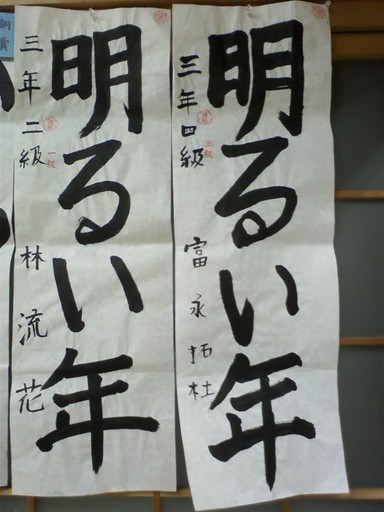 明るい年
三年四級
三級
富永拓杜
明るい年
三年二級
一級
林流花
銅賞